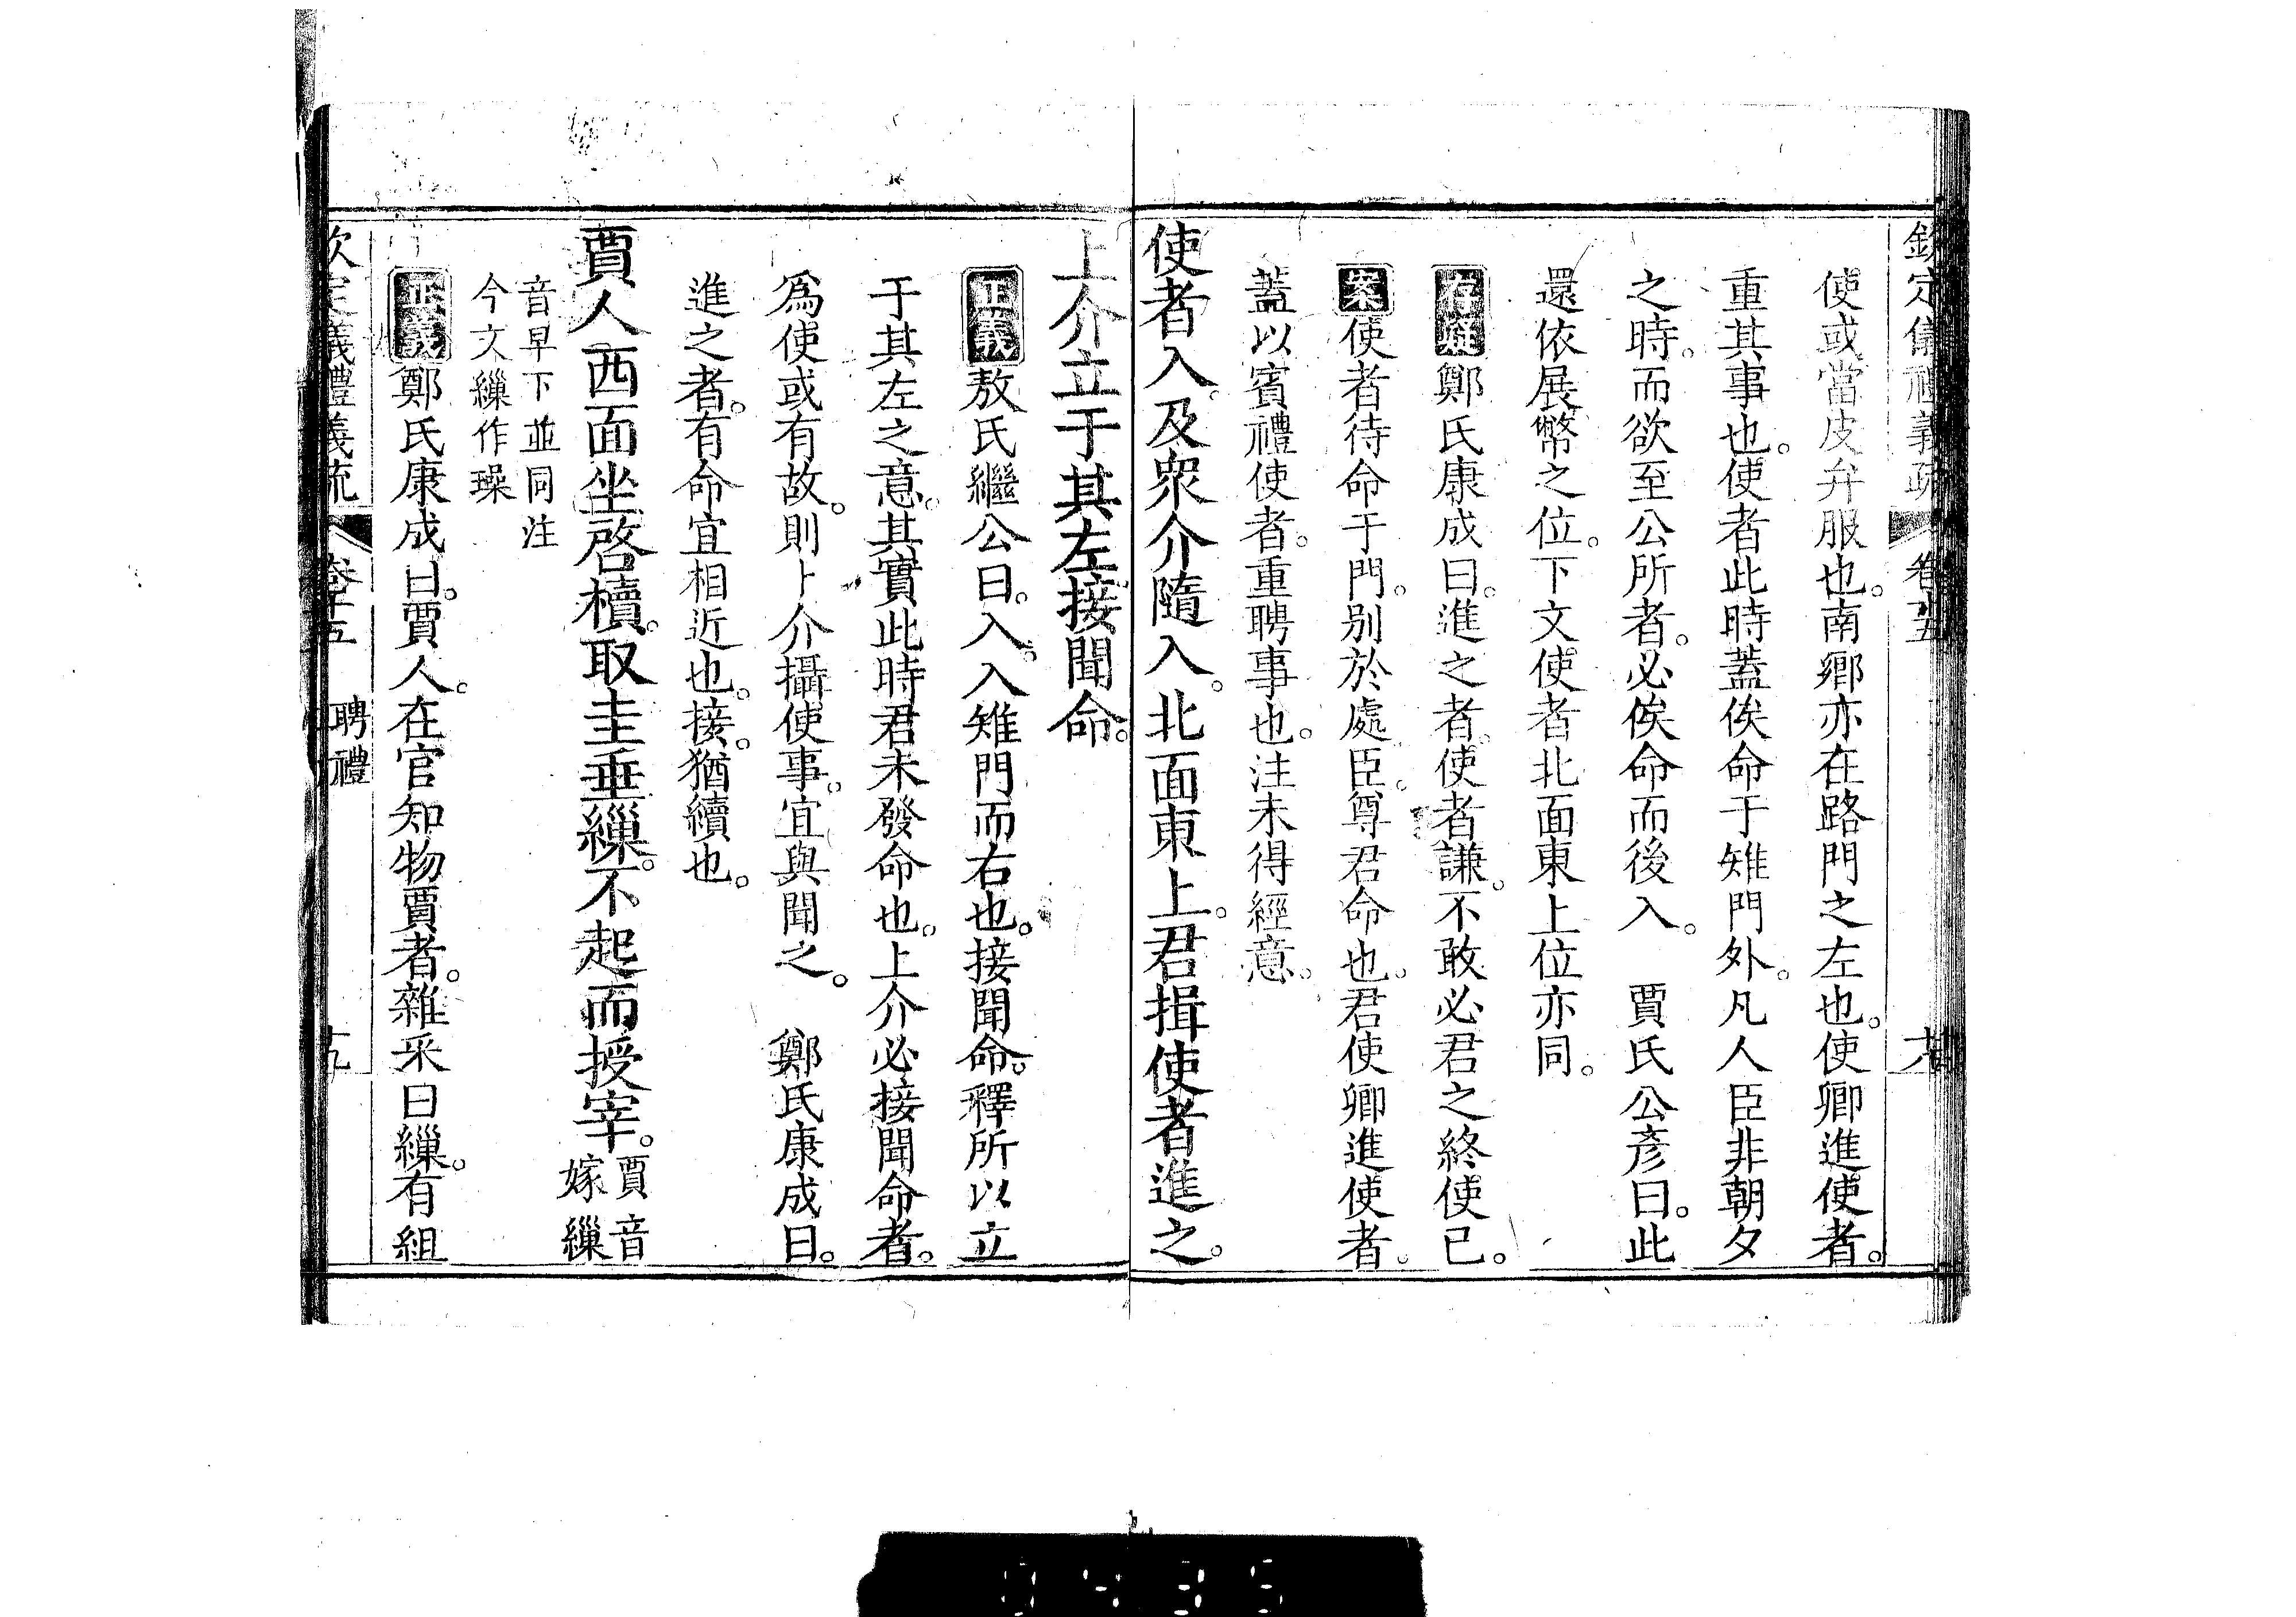 欽定儀禮義疏 卷十五
使或當皮弁服也。南鄉亦在路門之左也。使卿進使者。
重其事也。使者此時蓋俟命于雉門外。凡人臣非朝夕
之時。而欲至公所者。必俟命而後入。 賈氏公彥曰。此
還依展幣之位。下文使者北面東上位亦同。
存疑 鄭氏康成曰。進之者。使者謙。不敢必君之終使己。
案 使者待命于門。别於處臣。尊君命也。君使卿進使者。
蓋以賓禮使者。重聘事也。注未得經意。
使者入。及衆介隨入。北面東上。君揖使者進之。
上介立于其左接聞命。
正義 敖氏繼公曰。入。入雉門而右也。接聞命。釋所以立
于其左之意。其實此時君未發命也。上介必接聞命者。
爲使或有故。則上介攝使事。宜與聞之。 鄭氏康成曰。
進之者。有命宜相近也。接。猶續也。
賈人西面坐啓櫝。取圭垂繅。不起而授宰。賈音嫁 繅
音早下並同 注
今文繅作璪
正義 鄭氏康成曰。賈人。在官知物賈者。雜采曰繅。有組
欽定儀禮義疏 卷十五 聘禮 十九
0435